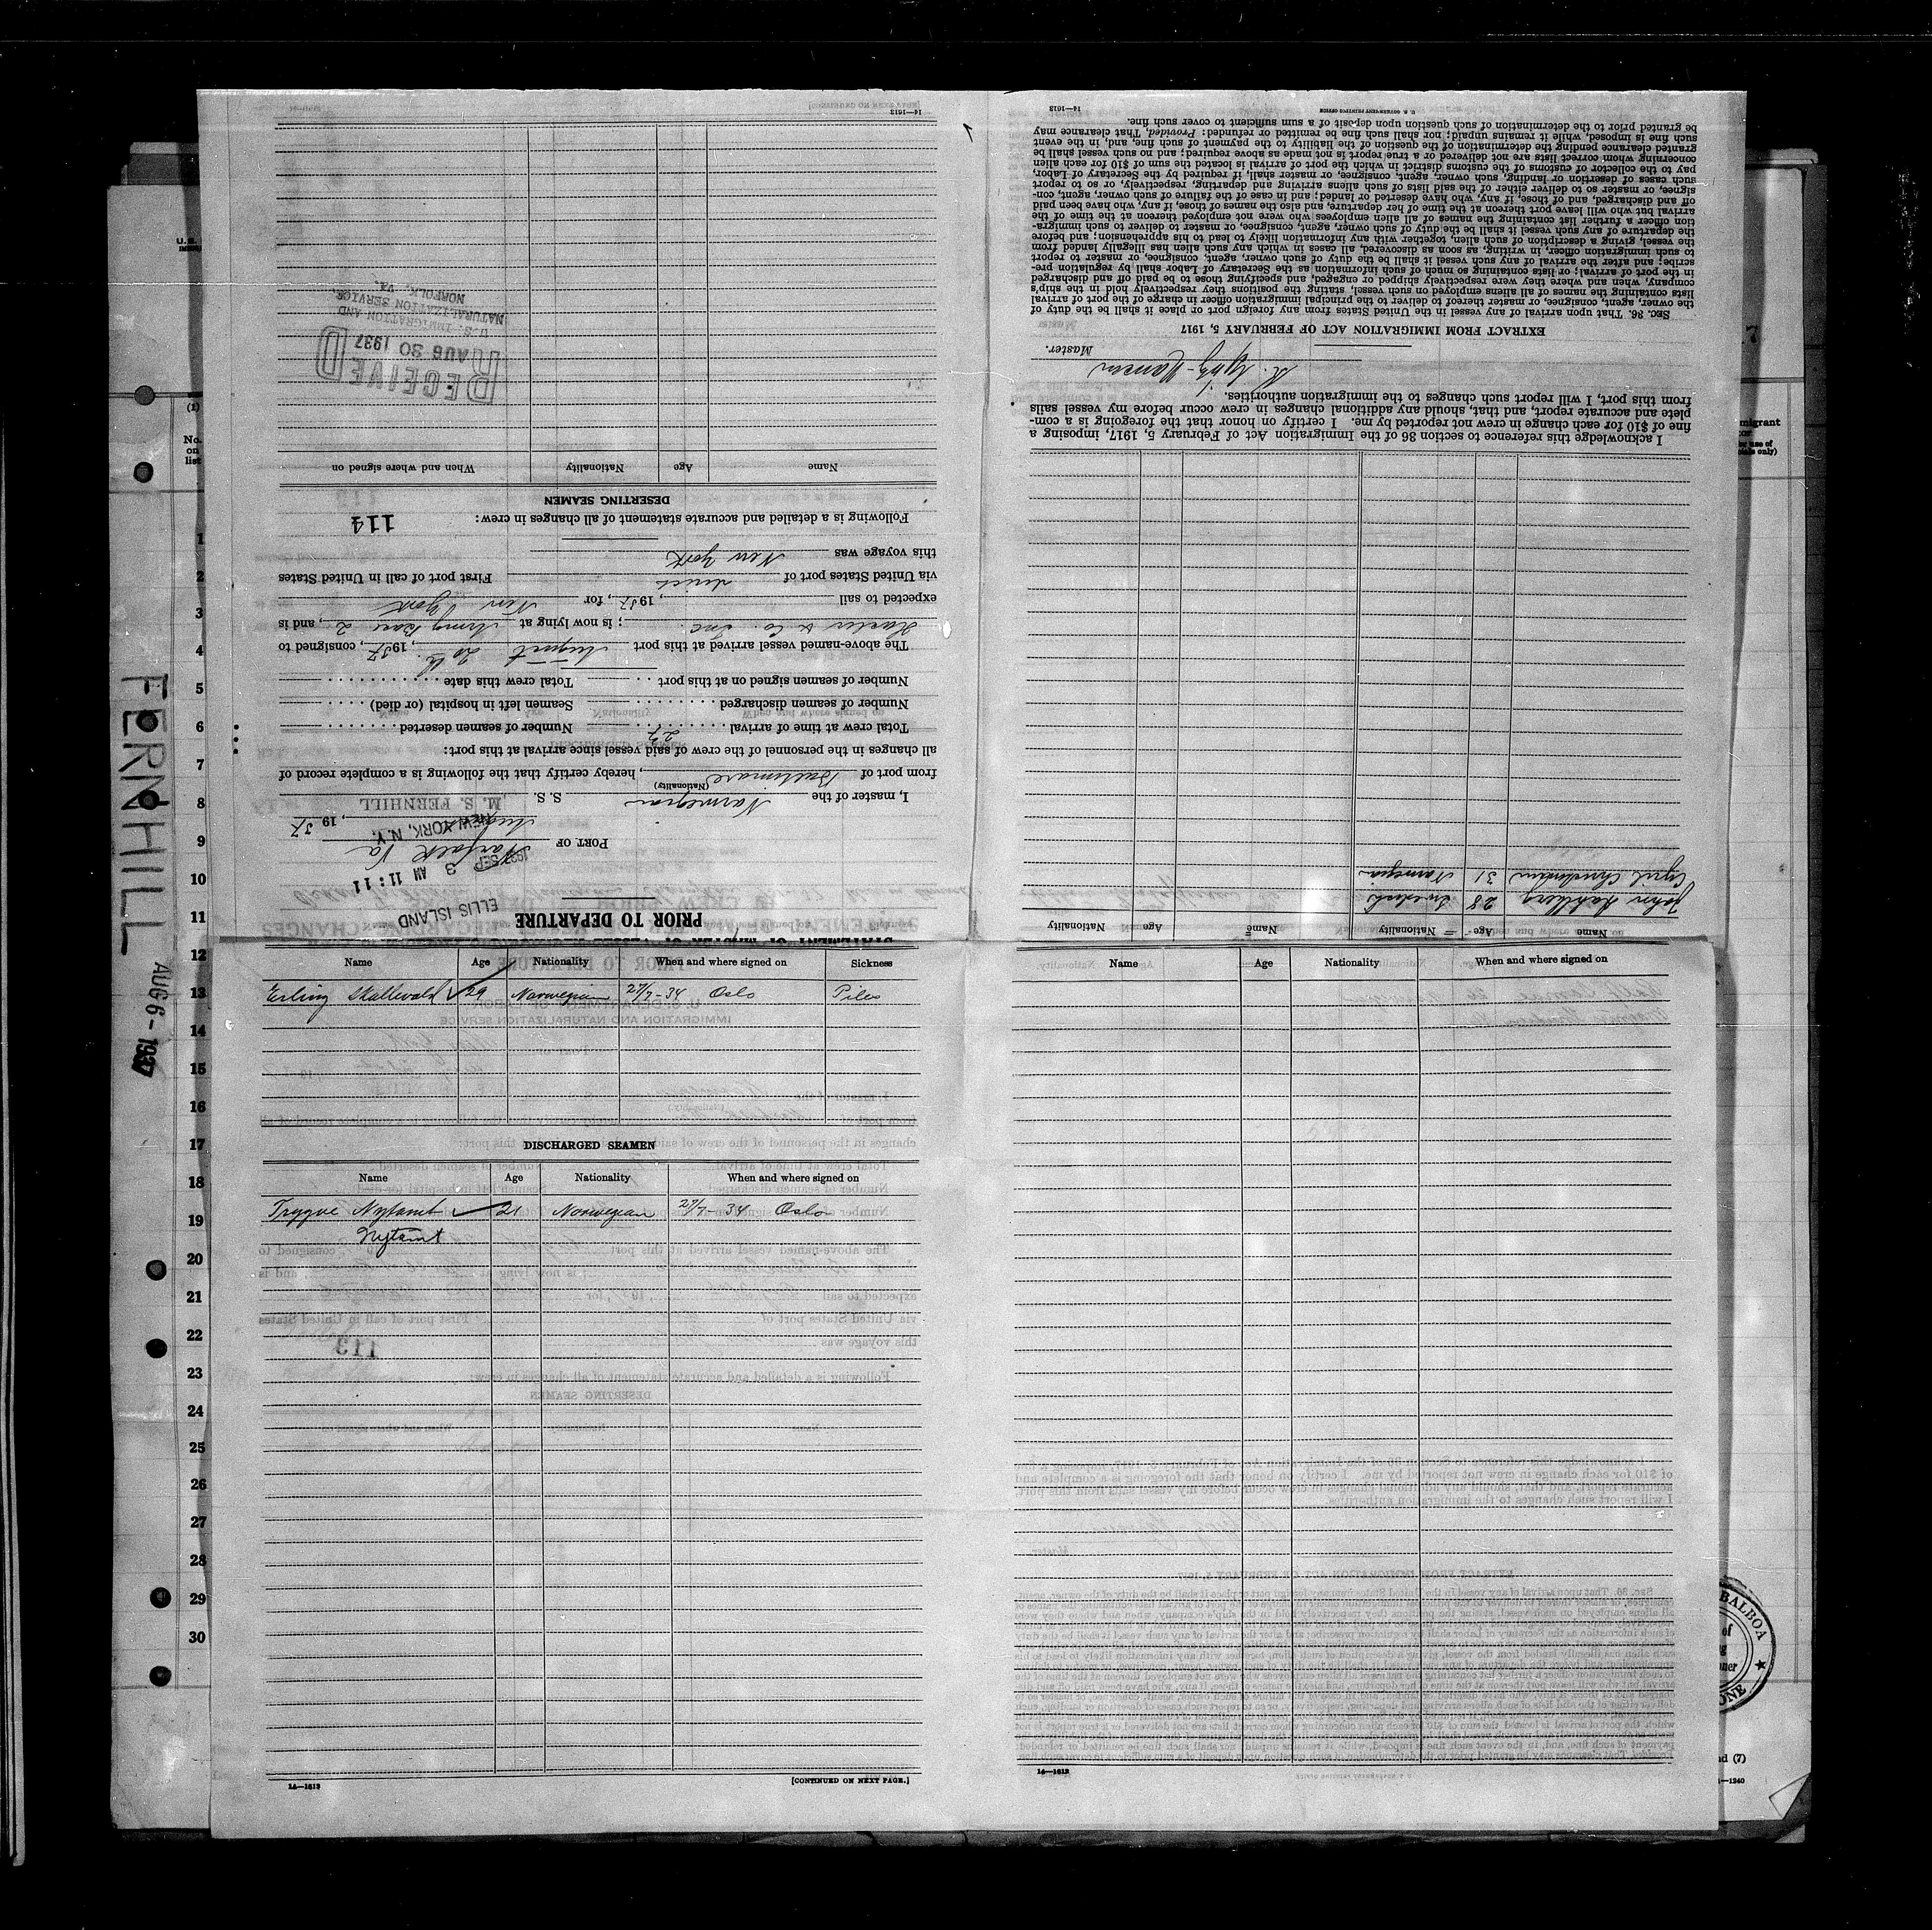 FERNHILL AUG 6 - 1937
U. S.
(1)
No.
on
list
1
2
3
4
5
6
7
8
9
10
11
12
13
14
15
16
17
18
19
20
21
22
23
24
25
26
27
28
29
30
PRIOR TO DEPARTURE
ELLIS ISLAND
1937 SEP 3 AM 11:11
NEW YORK, N.Y.
PORT OF Norfolk Va
, 19 37
I, master of the Norwegian S. S. M. S. FERNHILL
(Nationality)
from port of Baltimore , hereby certify that the following is a complete record of
all changes in the personnel of the crew of said vessel since arrival at this port:
Total crew at time of arrival 27 Number of seamen deserted
Number of seamen discharged Seamen left in hospital (or died)
Number of seamen signed on at this port Total crew this date
The above-named vessel arrived at this port August 20th , 1937, consigned to
& Co. Inc. ; is now lying at Army Base 2 , and is
expected to sail , 1937, for New York
via United States port of direct First port of call in United States
this voyage was New York
Following is a detailed and accurate statement of all changes in crew: 114
DESERTING SEAMEN
Name Age Nationality When and where signed on
RECEIVED
AUG 20 1937
U. S. IMMIGRATION AND
NATURALIZATION SERVICE,
NORFOLK, VA.
14—1613
Name Age Nationality Name Age Nationality
John 28 Swedish
Cyril 31 Norwegian
I acknowledge this reference to section 36 of the Immigration Act of February 5, 1917, imposing a
fine of $10 for each change in crew not reported by me. I certify on honor that the foregoing is a com-
plete and accurate report, and that, should any additional changes in crew occur before my vessel sails
from this port, I will report such changes to the immigration authorities.
Master.
EXTRACT FROM IMMIGRATION ACT OF FEBRUARY 5, 1917
SEC. 36. That upon arrival of any vessel in the United States from any foreign port or place it shall be the duty of
the owner, agent, consignee, or master thereof to deliver to the principal immigration officer in charge of the port of arrival
lists containing the names of all aliens employed on such vessel, stating the positions they respectively hold in the ship's
company, when and where they were respectively shipped or engaged, and specifying those to be paid off and discharged
in the port of arrival; or lists containing so much of such information as the Secretary of Labor shall by regulation pre-
scribe; and after the arrival of any such vessel it shall be the duty of such owner, agent, consignee, or master to report
to such immigration officer, in writing, as soon as discovered, all cases in which any such alien has illegally landed from
the vessel, giving a description of such alien, together with any information likely to lead to his apprehension; and before
the departure of any such vessel it shall be the duty of such owner, agent, consignee, or master to deliver to such immigra-
tion officer a further list containing the names of all alien employees who were not employed thereon at the time of the
arrival but who will leave port thereon at the time of her departure, and also the names of those, if any, who have been paid
off and discharged, and of those, if any, who have deserted or landed; and in case of the failure of such owner, agent, con-
signee, or master so to deliver either of the said lists of such aliens arriving and departing, respectively, or so to report
such cases of desertion or landing, such owner, agent, consignee, or master shall, if required by the Secretary of Labor,
pay to the collector of customs of the customs district in which the port of arrival is located the sum of $10 for each alien
concerning whom correct lists are not delivered or a true report is not made as above required; and no such vessel shall be
granted clearance pending the determination of the question of the liability to the payment of such fine, and, in the event
such fine is imposed, while it remains unpaid; nor shall such fine be remitted or refunded: Provided, That clearance may
be granted prior to the determination of such question upon deposit of a sum sufficient to cover such fine.
14—1613
Name Age Nationality When and where signed on Sickness
Erling Skallevold 29 Norwegian 27/7-34 Oslo Piles
DISCHARGED SEAMEN
Name Age Nationality When and where signed on
Trygve Nytamt 21 Norwegian 27/7-34 Oslo
Nytamt
14—1613 [CONTINUED ON NEXT PAGE.]
Name Age Nationality When and where signed on
14—1613
BALBOA